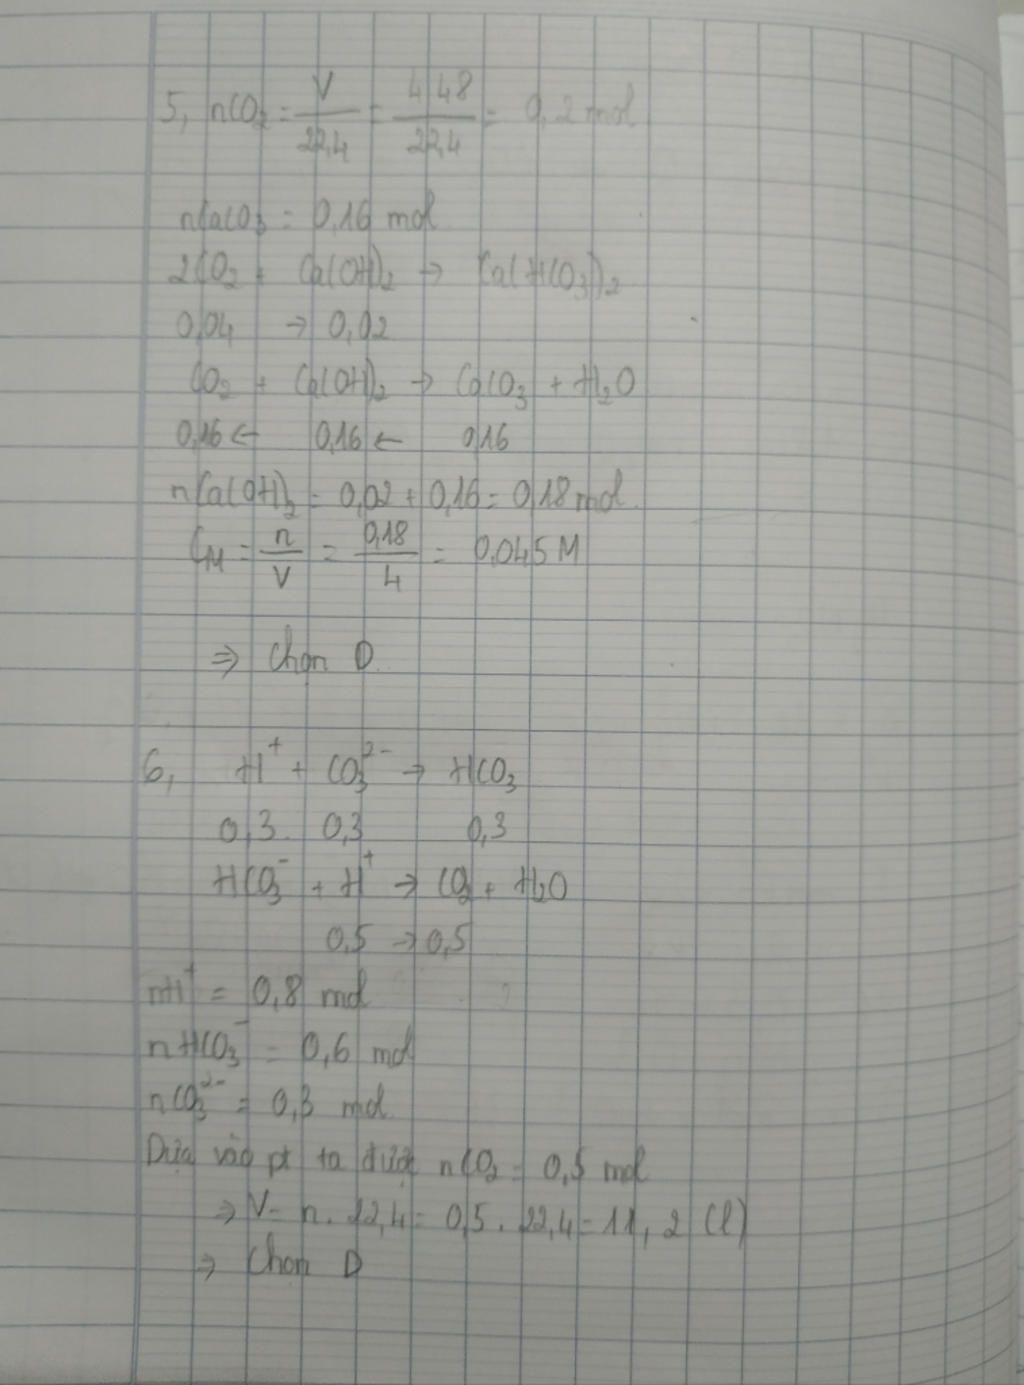 5, nCO₂ = V/22,4 = 4,48/22,4 = 0,2 mol
nCaCO₃ = 0,16 mol
2CO₂ + Ca(OH)₂ → Ca(HCO₃)₂
0,04 → 0,02
CO₂ + Ca(OH)₂ → CaCO₃ + H₂O
0,16 ← 0,16 ← 0,16
nCa(OH)₂ = 0,02 + 0,16 = 0,18 mol.
C_M = n/V = 0,18/4 = 0,045 M
⇒ Chọn D.
6, H⁺ + CO₃²⁻ → HCO₃
0,3 0,3 0,3
HCO₃⁻ + H⁺ → CO₂ + H₂O
0,5 → 0,5
nH⁺ = 0,8 mol
nHCO₃⁻ = 0,6 mol
nCO₃²⁻ = 0,3 mol
Dựa vào pt ta được nCO₂ = 0,5 mol
⇒ V = n . 22,4 = 0,5 . 22,4 = 11,2 (l)
⇒ Chọn D